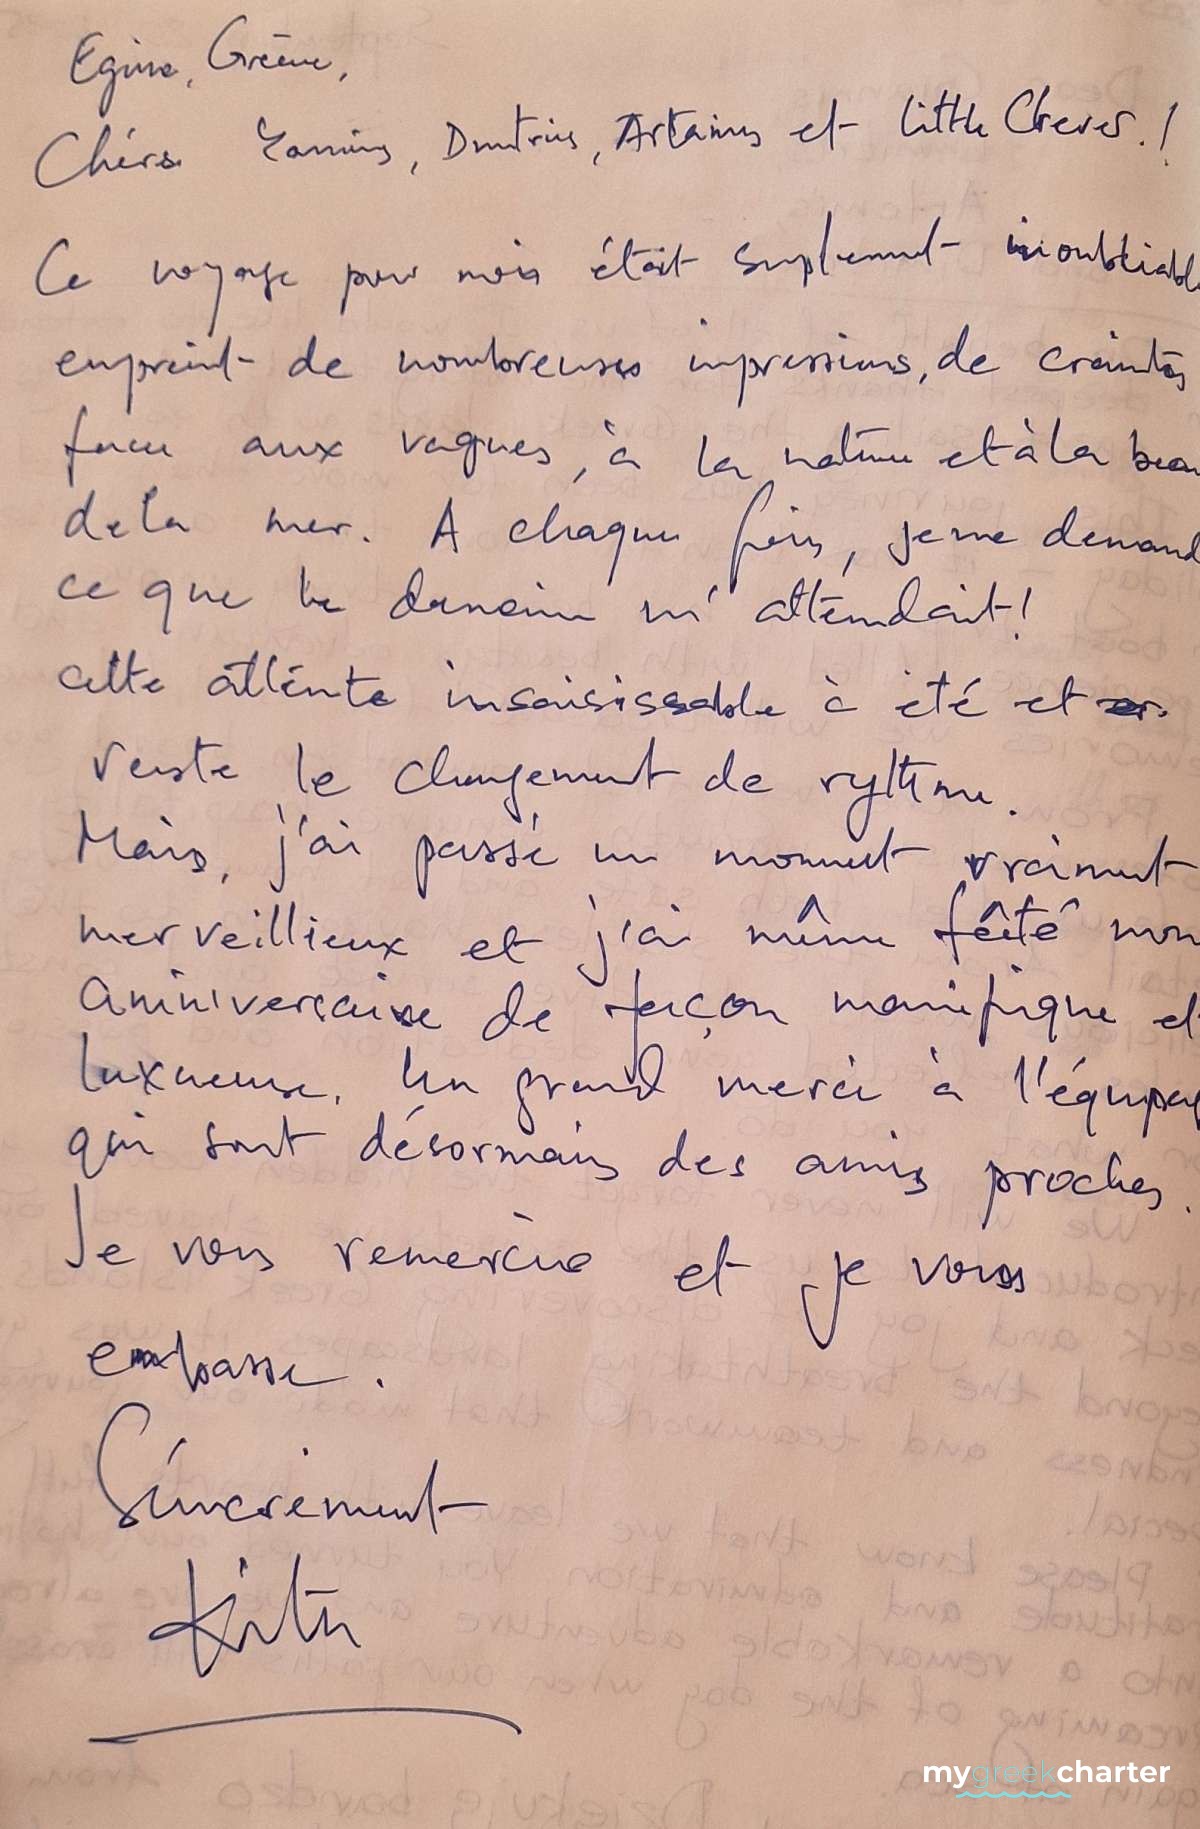 Egine, Grèce,
Chérs Yannis, Dimitrius, Artemis et little Cheves.!
Ce voyage pour mois était simplement inoubliable
empreint de nombreuses impressions, de craintes
face aux vagues, à la nature et à la beau
de la mer. A chaque fois, je me demand
ce que le demain m'attendait!
cette attente insaisissable à été et
reste le changement de rythme.
Mais, j'ai passé un moment vraiment
merveillieux et j'ai même fêté mon
anniversaire de façon manifique et
luxueuse. Un grand merci à l'équipag
qui sont désormais des amis proches.
Je vous remercie et je vous
embasse.
Sincèrement
mygreekcharter